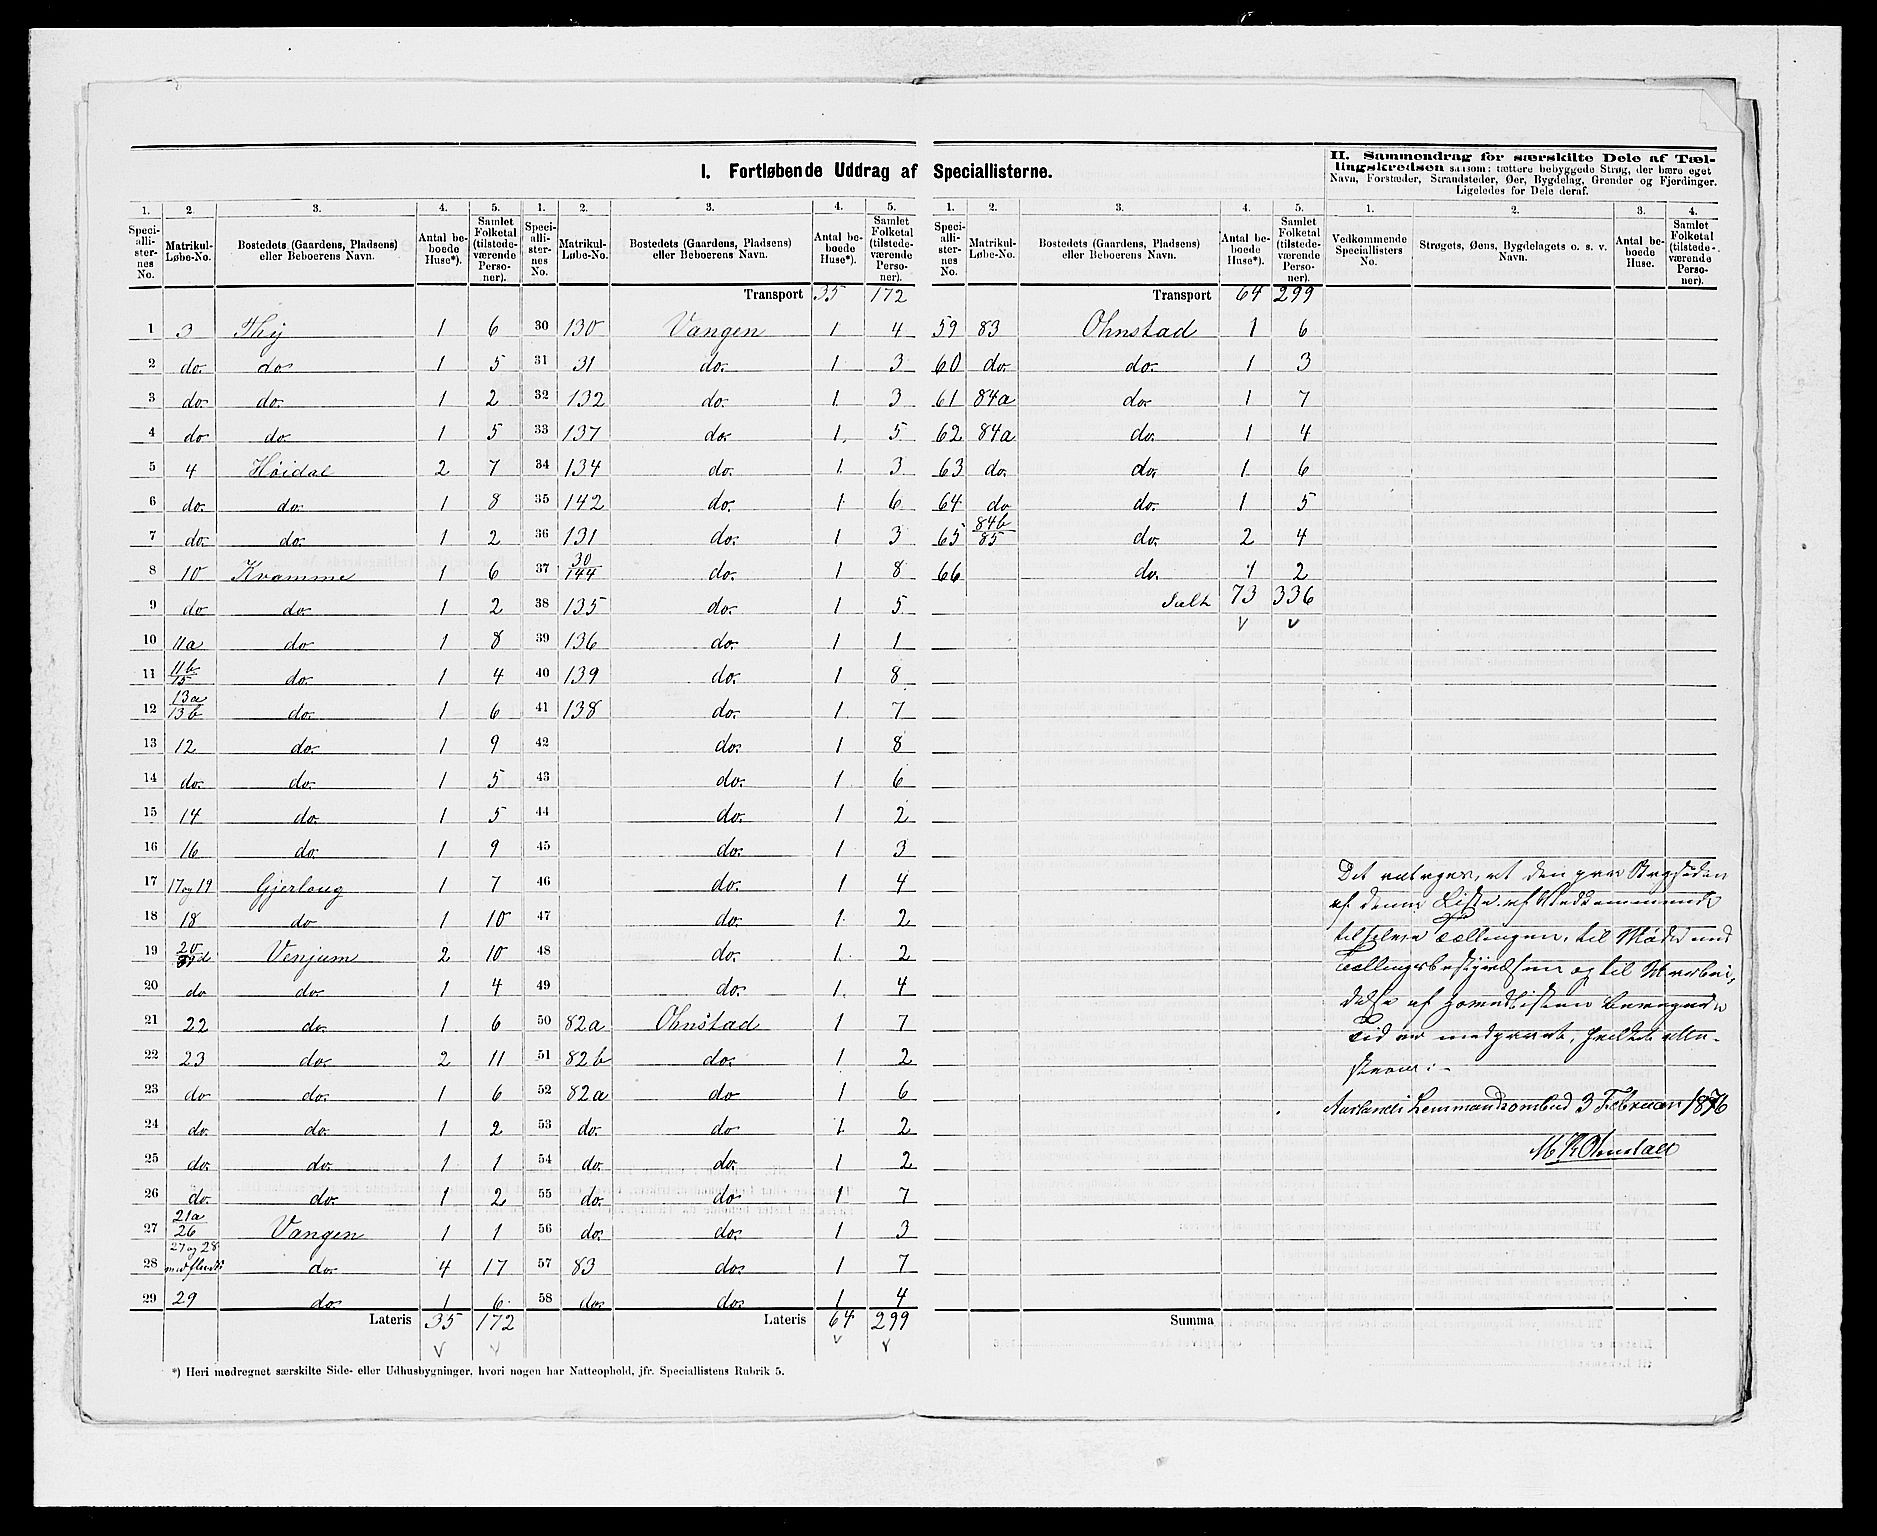 I. Fortløbende Uddrag af Speciallisterne.
II. Sammendrag for særskilte Dele af Tæl-
lingskredsen saasom: tættere bebyggede Strøg, der bære eget
Navn, Forstæder, Strandsteder, Øer, Bygdelag, Grender og Fjerdinger.
Ligeledes for Dele deraf.
1. 2. 3. 4. 5. 1. 2. 3. 4. 5. 1. 2. 3. 4. 5. 1. 2. 3. 4.
Speci-alli-ster-nes No. Matrikul-Løbe-No. Bostedets (Gaardens, Pladsens) eller Beboerens Navn. Antal be-boede Huse*). Samlet Folketal (tilstede-værende Perso-ner).
Speci-alli-ster-nes No. Matrikul-Løbe-No. Bostedets (Gaardens, Pladsens) eller Beboerens Navn. Antal be-boede Huse*). Samlet Folketal (tilstede-værende Perso-ner).
Speci-alli-ster-nes No. Matrikul-Løbe-No. Bostedets (Gaardens, Pladsens) eller Beboerens Navn. Antal be-boede Huse*). Samlet Folketal (tilstede-værende Perso-ner).
Vedkommende Speciallisters No. Strøgets, Øens, Bygdelagets o. s. v. Navn. Antal be-boede Huse. Samlet Folketal (tilstede-værende Perso-ner).
1 3 Thij 1 6
2 do. do 1 5
3 do. do. 1 2
4 do do 1 5
5 4 Høidal 2 7
6 do. do. 1 8
7 do. do. 1 2
8 10 Kvamme 1 6
9 do do. 1 2
10 11a do 1 8
11 11b/15 do. 1 4
12 13a/13b do. 1 6
13 12 do. 1 9
14 do. do. 1 5
15 14 do. 1 5
16 16 do. 1 9
17 17 og 19 Gjerloug 1 7
18 18 do 1 10
19 Venjum 2 10
20 do do. 1 4
21 22 do. 1 6
22 23 do. 2 11
23 do do. 1 6
24 do. do. 1 2
25 do. do. 1 1
26 do. do. 1 2
27 21a/26 Vangen 1 1
28 27 og 28 do. 4 17
29 29 do. 1 6
Lateris 35 172
Transport 35 172
30 130 Vangen 1 4
31 31 do. 1 3
32 132 do. 1 3
33 137 do. 1 5
34 134 do. 1 3
35 142 do. 1 6
36 131 do. 1 3
37 30/144 do. 1 8
38 135 do. 1 5
39 136 do. 1 1
40 139 do. 1 8
41 138 do. 1 7
42 do. 1 8
43 do. 1 6
44 do. 1 2
45 do. 1 3
46 do. 1 4
47 do. 1 2
48 do. 1 2
49 do. 1 4
50 82a Ohnstad 1 7
51 82b do. 1 2
52 82a do 1 6
53 do. do 1 2
54 do. do. 1 2
55 do. do 1 7
56 do. do. 1 3
57 83 do. 1 7
58 do. do. 1 4
Lateris 64 299
Transport 64 299
59 83 Ohnstad 1 6
60 do. do. 1 3
61 84a do. 1 7
62 84a do. 1 4
63 do. do. 1 6
64 do do. 1 5
65 84b/85 do. 2 4
66 do. 1 2
Ialt 73 336
Summa
Det vedtages, at den paa Bagsiden
af denne Liste af Vedkommende
til selve Tællingen, til Møde med
Tællingsbestyrelsen og til Udarbei-
delse af Hovedlisten beregnede
Tid er medgaaet,
Aurlands Lensmandsombud 3 Februar 1876
*) Heri medregnet særskilte Side- eller Udhusbygninger, hvori nogen har Natteophold, jfr. Speciallistens Rubrik 5.